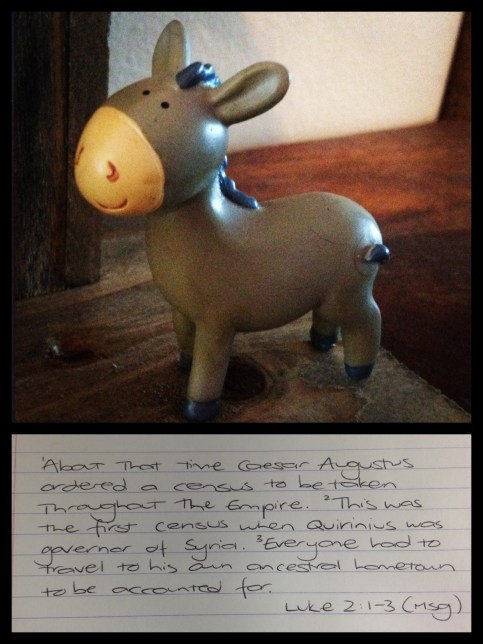 ¹About That time Caesar Augustus
ordered a census to be taken
Throughout The Empire. ²This was
the first census when Quirinius was
governor of Syria. ³Everyone had to
travel to his own ancestral hometown
to be accounted for.
Luke 2:1-3 (Msg)